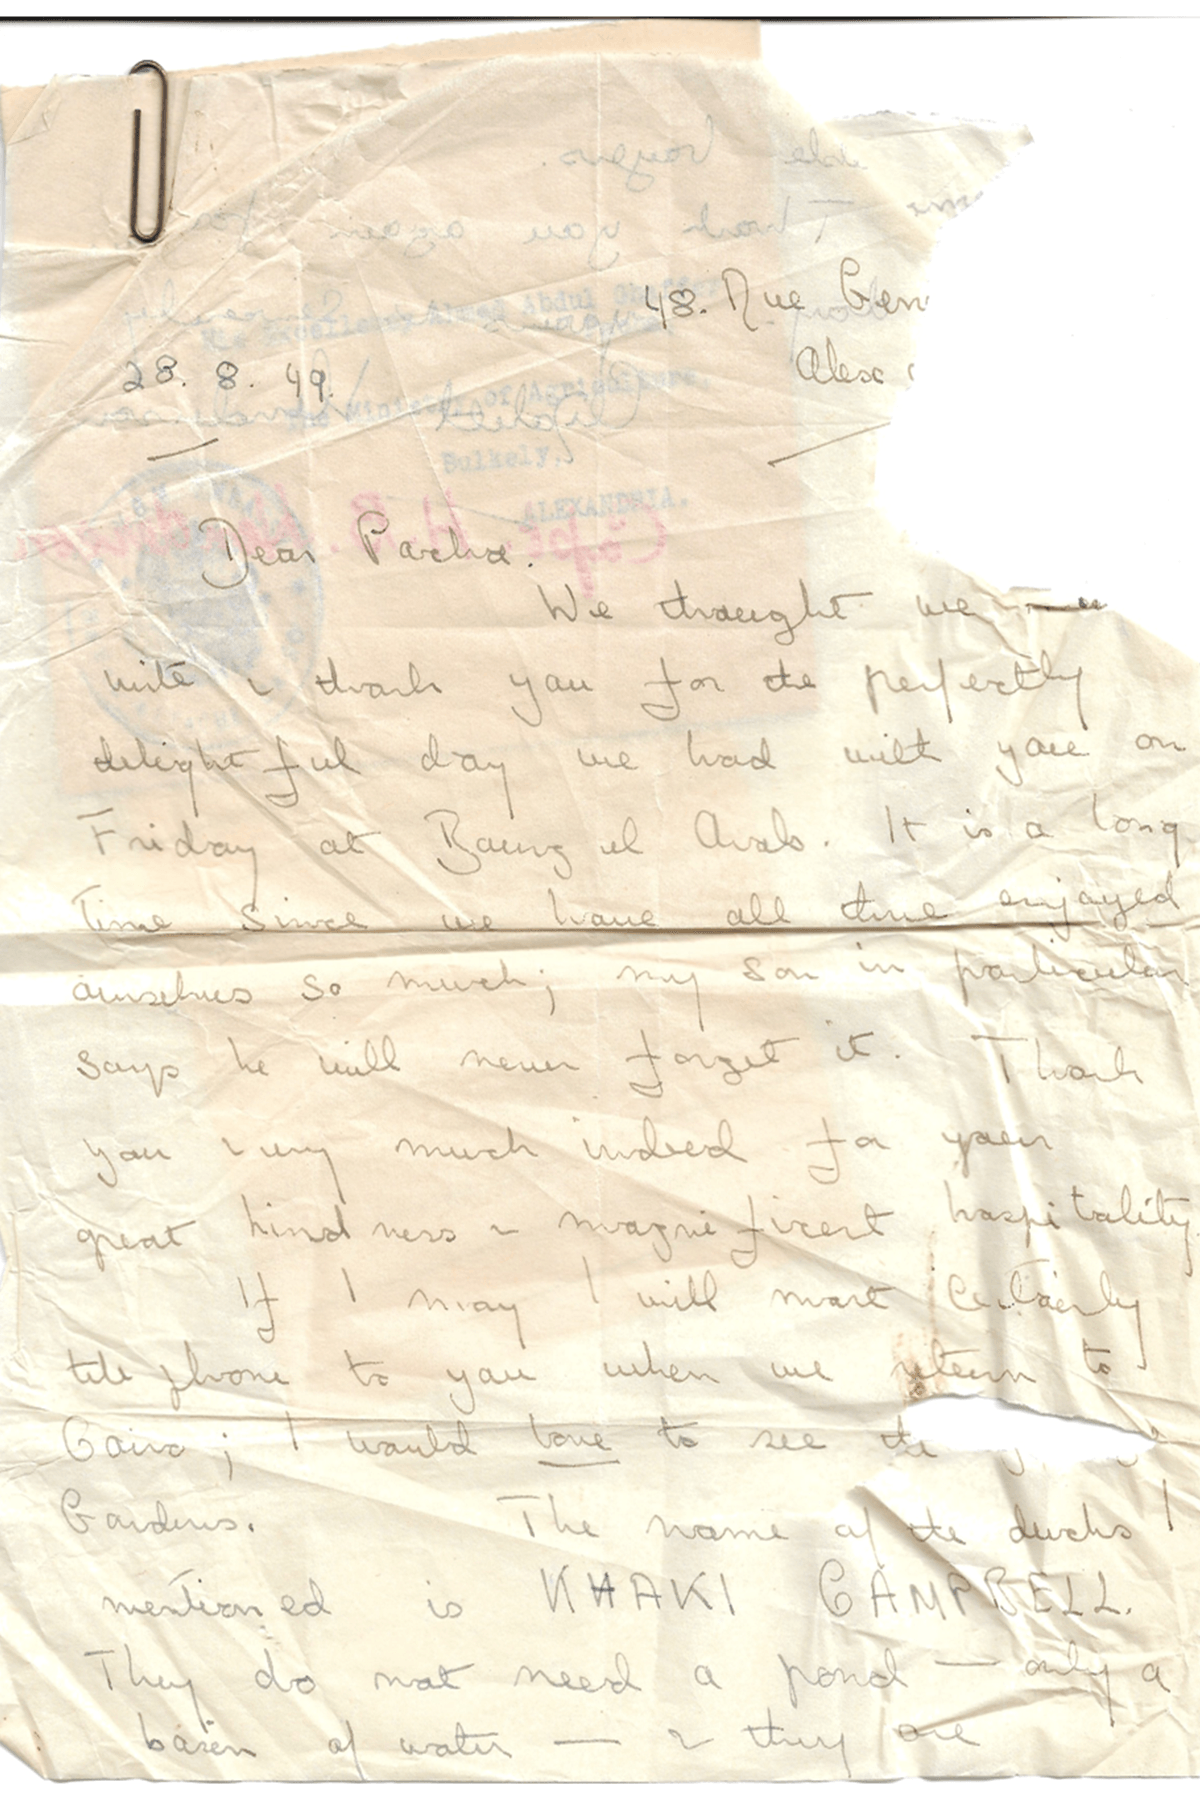 48. Rue Glen
Alex
28. 8. 49.
His Excellency Ahmed Abdul Ghaffar
The Minister of Agriculture,
Bulkely.
ALEXANDRIA.
Dear Pacha.
We thought we
write & thank you for the perfectly
delightful day we had with you on
Friday at Bourg el Arab. It is a long
time since we have all three enjoyed
ourselves so much; my son in particular
says he will never forget it. Thank
you very much indeed for your
great kindness & magnificent hospitality
If I may I will most certainly
telephone to you when we return to
Cairo; I would love to see the
Gardens. The name of the ducks I
mentioned is KHAKI CAMPBELL.
They do not need a pond — only a
basin of water — & they are